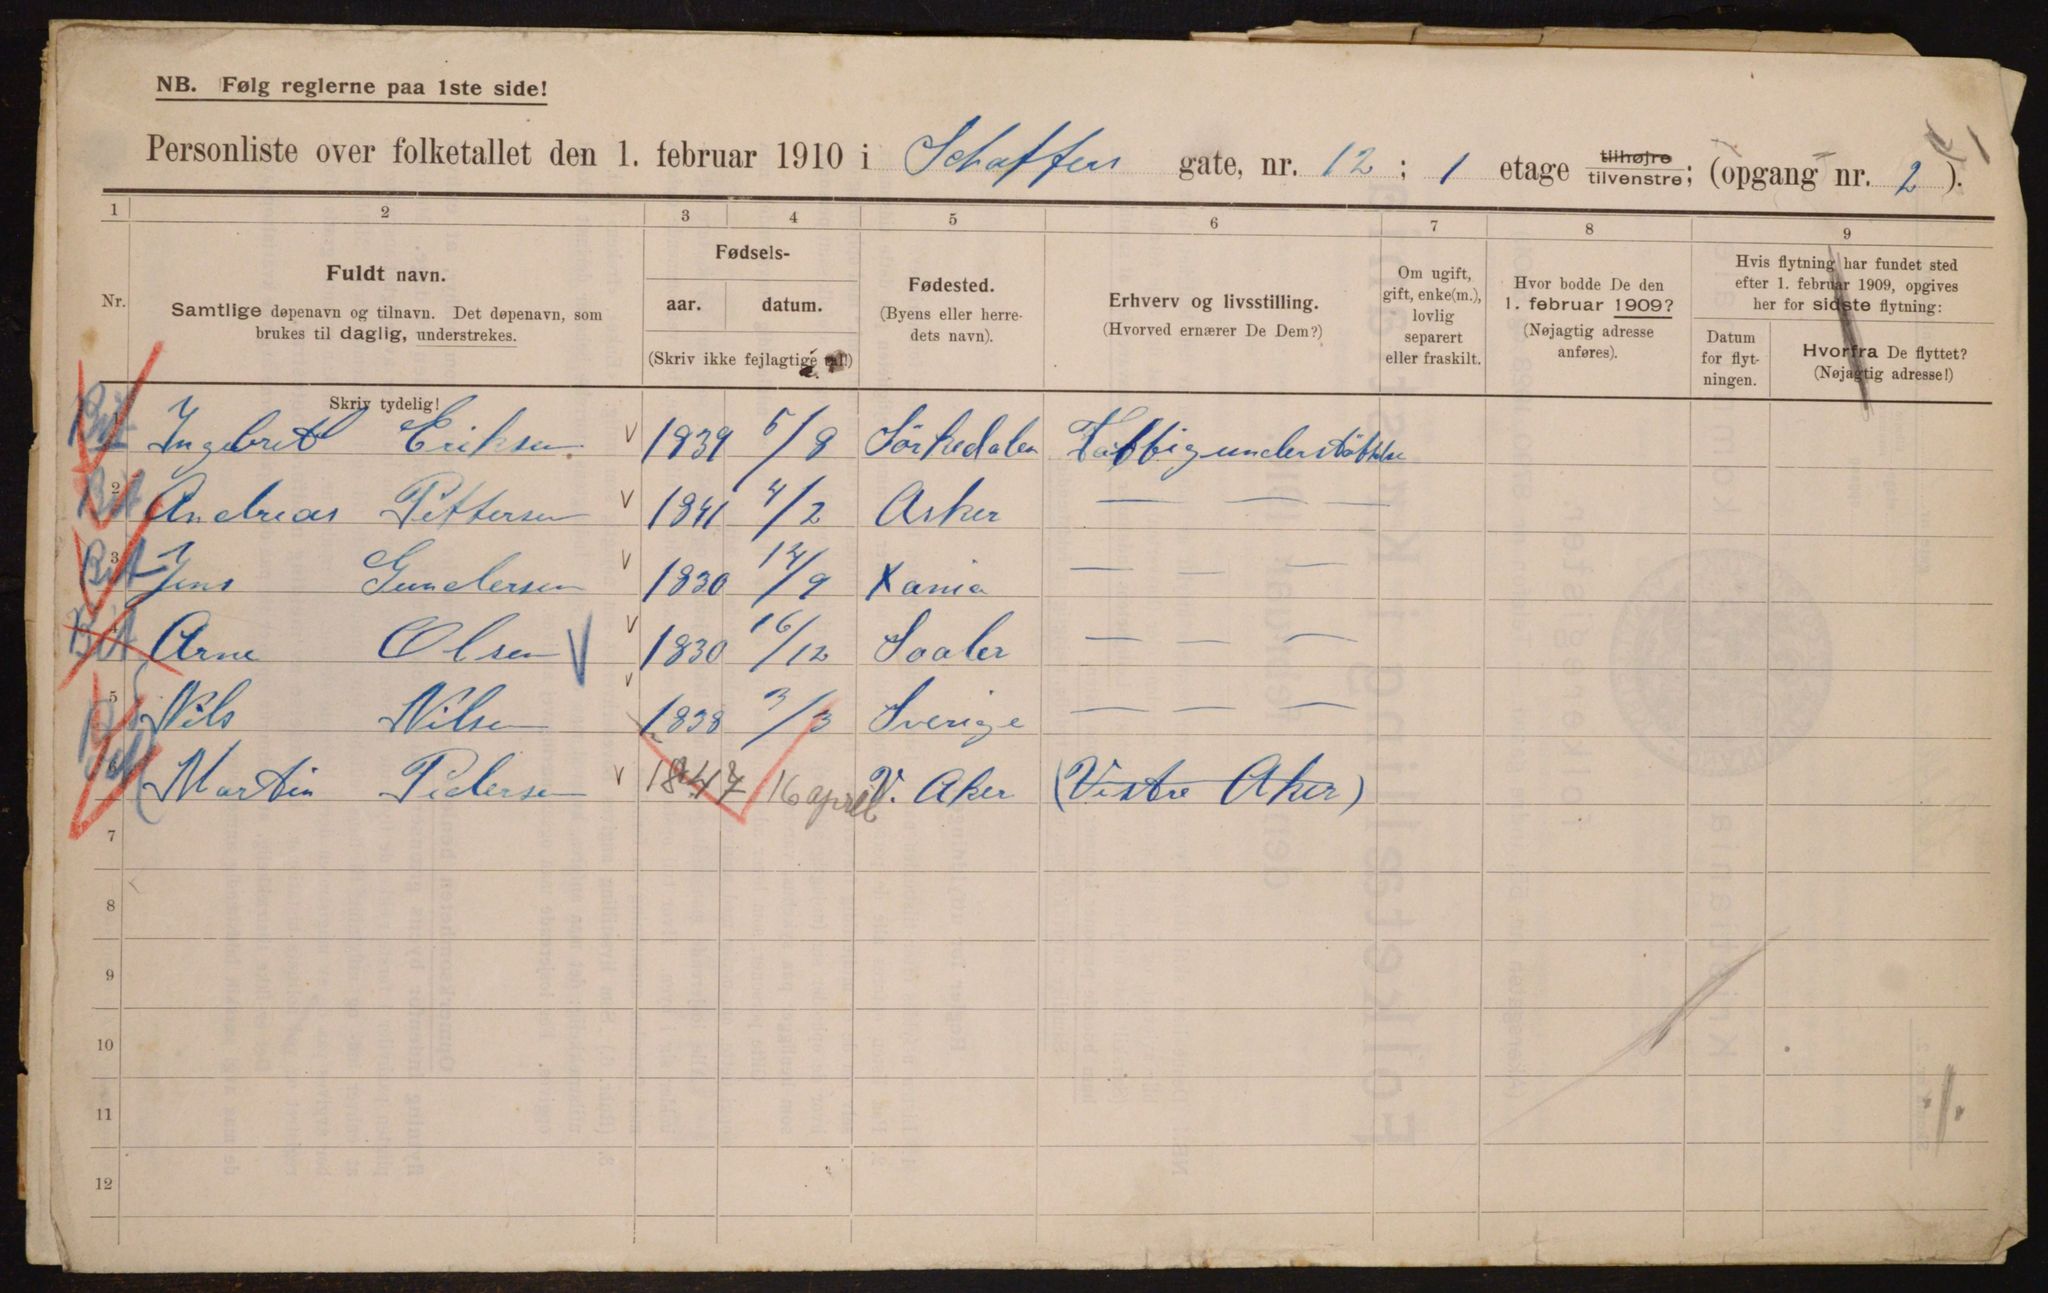 NB. Følg reglerne paa 1ste side!
Personliste over folketallet den 1. februar 1910 i Schaffers gate, nr. 12; 1 etage tilhøjre tilvenstre; (opgang nr. 2).
1 2 3 4 5 6 7 8 9
Nr.
Fuldt navn.
Samtlige døpenavn og tilnavn. Det døpenavn, som
brukes til daglig, understrekes.
Skriv tydelig!
Fødsels-
aar. datum.
(Skriv ikke fejlagtige tal!)
Fødested.
(Byens eller herre-
dets navn).
Erhverv og livsstilling.
(Hvorved ernærer De Dem?)
Om ugift,
gift, enke(m.),
lovlig
separert
eller fraskilt.
Hvor bodde De den
1. februar 1909?
(Nøjagtig adresse
anføres).
Hvis flytning har fundet sted
efter 1. februar 1909, opgives
her for sidste flytning:
Datum
for flyt-
ningen.
Hvorfra De flyttet?
(Nøjagtig adresse!)
1 Ingebret Eriksen 1839 5/8 Sörkedalen Fattigunderstöttelse
2 Andreas Pettersen 1841 4/2 Asker — — —
3 Jens Gundersen 1830 12/9 Xania — — —
4 Arne Olsen 1830 16/12 Soaler — — —
5 Nils Nilsen 1838 3/3 Sverige — — —
6 Martin Pedersen 1847 16 april V. Aker (Vestre Aker)
7
8
9
10
11
12